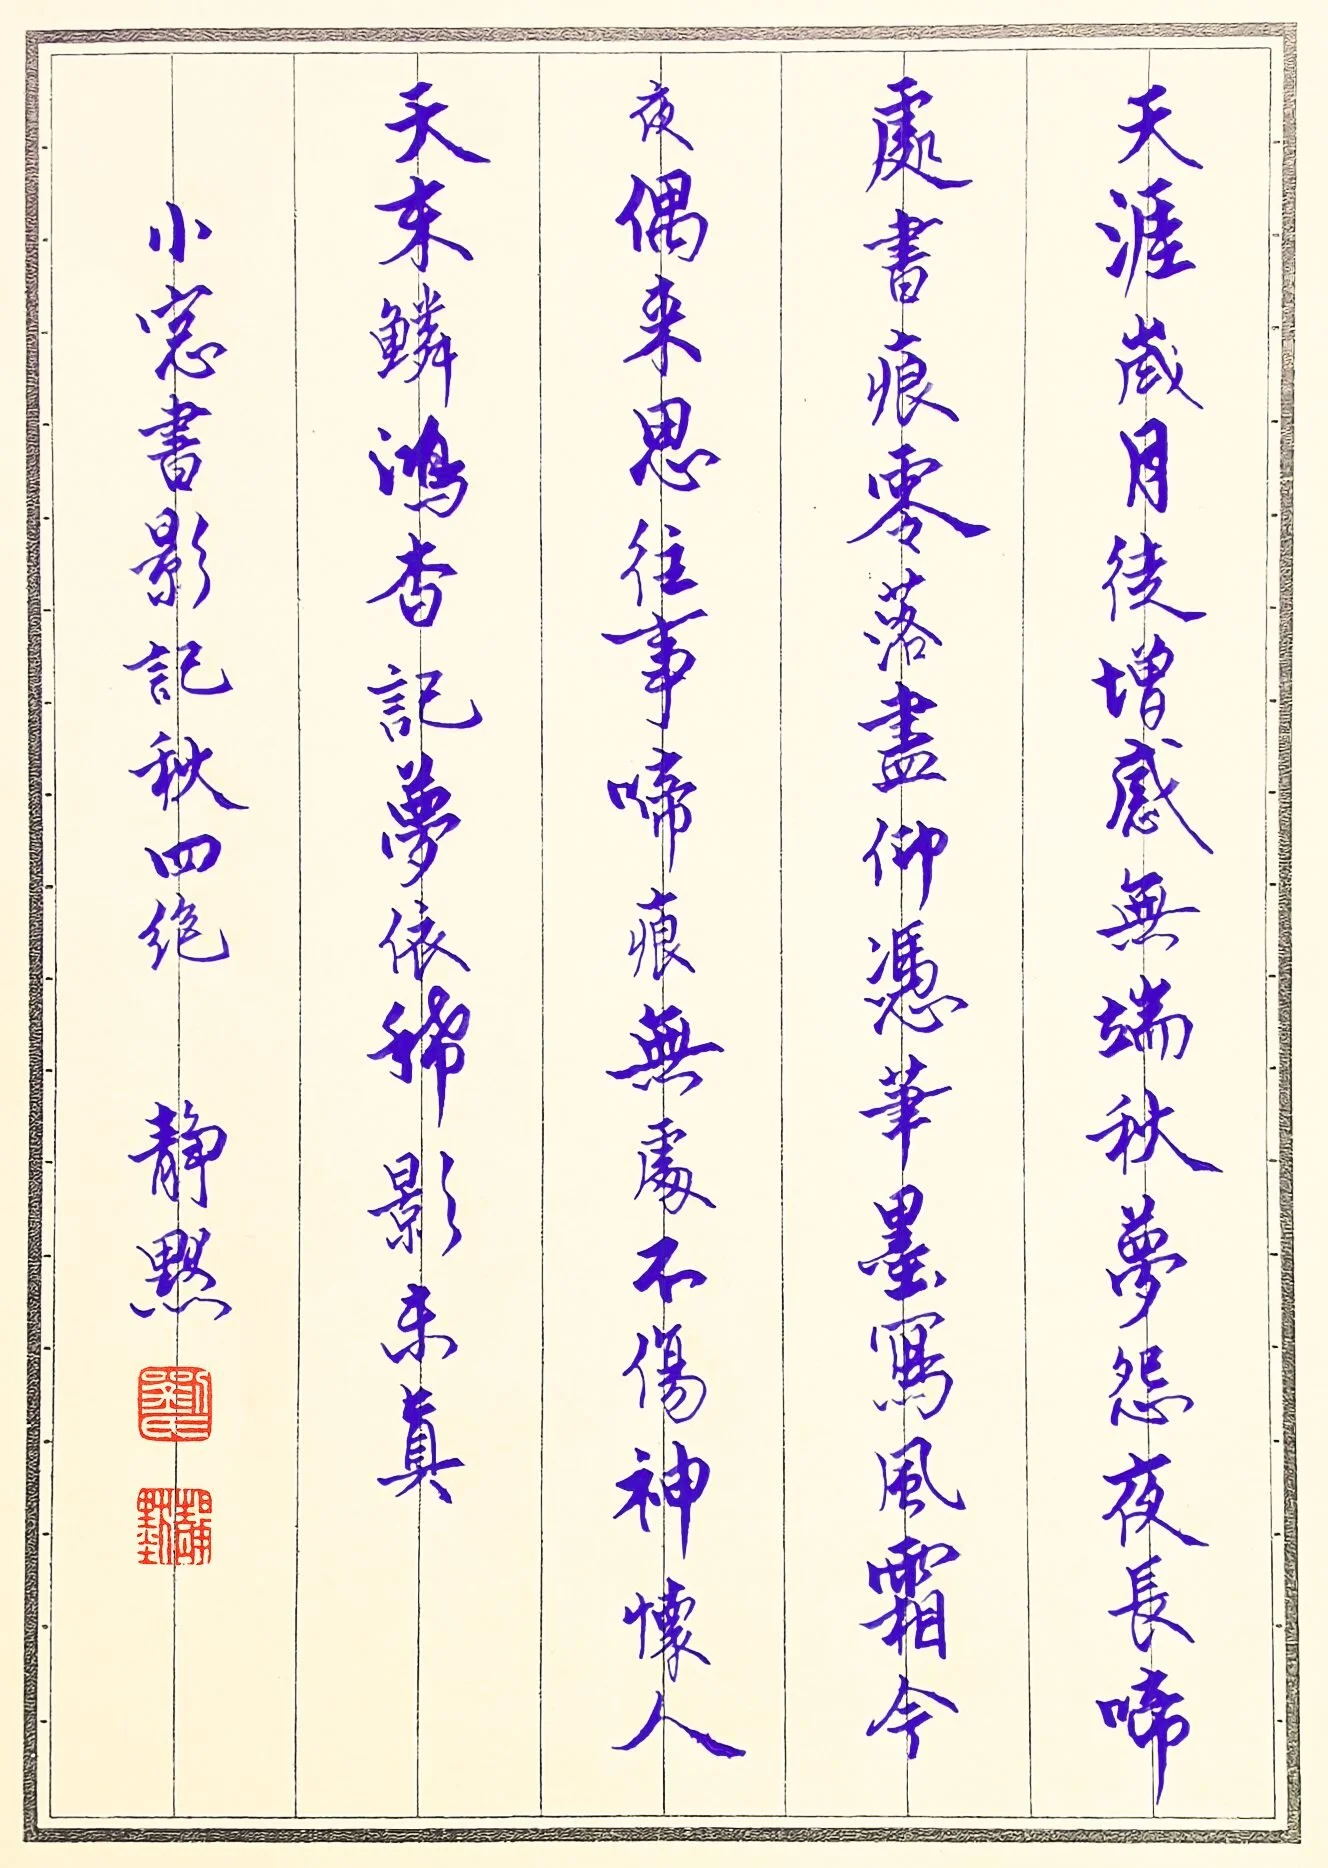 天涯歲月徒增感無端秋夢怨夜長啼
處書痕零落盡仰憑筆墨寫風霜今
夜偶來思往事啼痕無處不傷神懷人
天末鱗鴻杳記夢依稀影未真
小窓書影記秋四絶 静默
劉氏
靜默